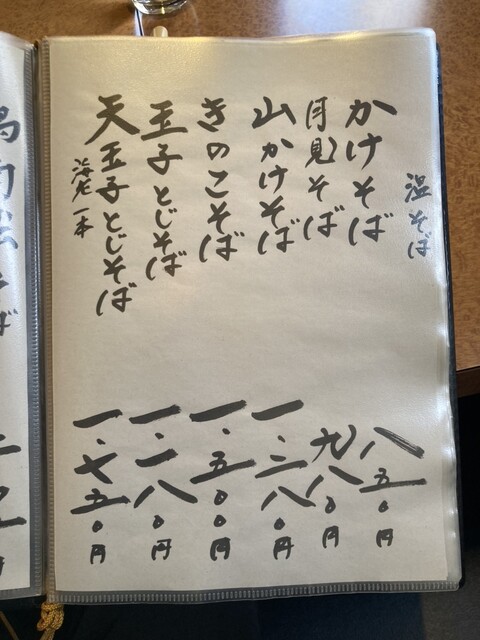 温そば
かけそば 八五〇円
月見そば 九八〇円
山かけそば 一.二八〇円
きのこそば 一.五〇〇円
玉子とじそば 一.一八〇円
天玉子とじそば 一.七五〇円
海老一本